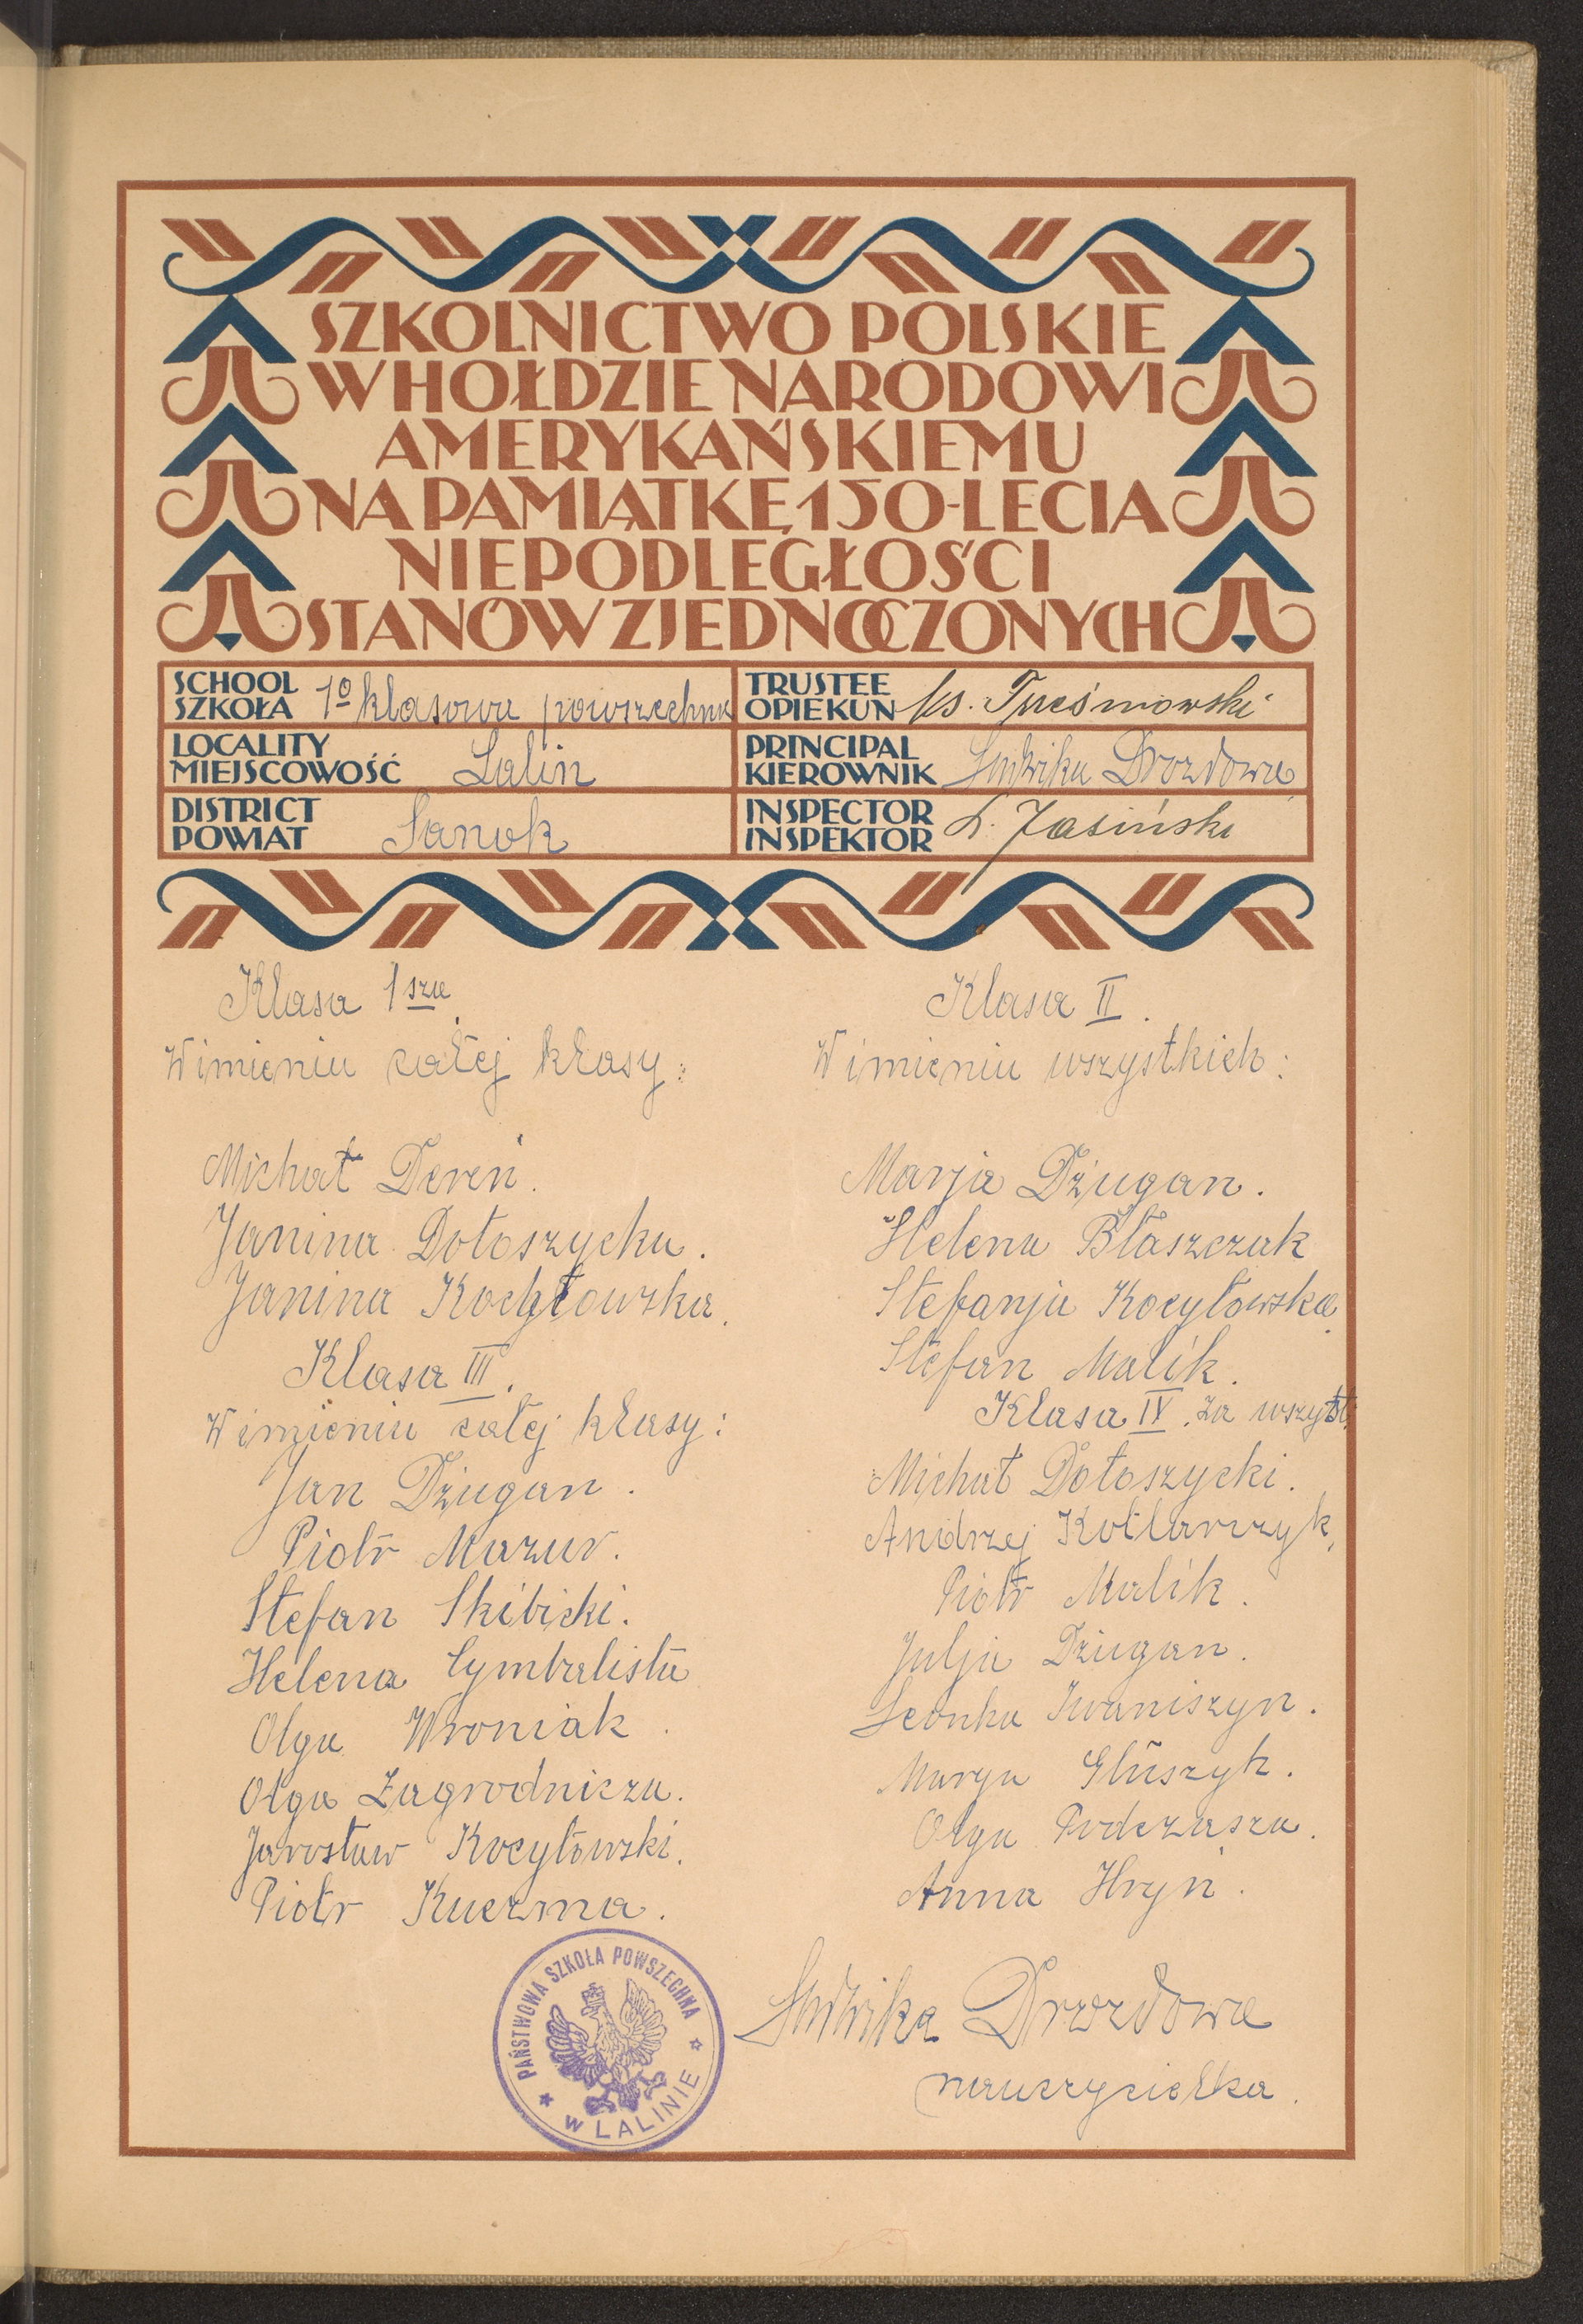 SZKOLNICTWO POLSKIE
W HOŁDZIE NARODOWI
AMERYKAŃSKIEMU
NA PAMIĄTKĘ 150-LECIA
NIEPODLEGŁOŚCI
STANÓW ZJEDNOCZONYCH
SCHOOL
SZKOŁA 1º klasowa powszechna
LOCALITY
MIEJSCOWOŚĆ Lalin
DISTRICT
POWIAT Sanok
TRUSTEE
OPIEKUN ks.
PRINCIPAL
KIEROWNIK Ludwika Drozdowa
INSPECTOR
INSPEKTOR L. Jasiński
Klasa 1sza
W imieniu całej klasy:
Michał Dereń.
Janina Dołoszycka.
Janina Kochyłowska.
Klasa III.
W imieniu całej klasy:
Jan Dżugan.
Piotr Mazur.
Stefan Skibicki.
Helena Cymbalista
Olga Woroniak.
Olga Zagrodnicza.
Jarosław Kocyłowski.
Piotr Kuczma.
Klasa II.
W imieniu wszystkich:
Marja Dżugan.
Helena Błaszczak
Stefanja Kocyłowska.
Stefan Malik.
Klasa IV. za wszyst.
Michał Dołoszycki.
Andrzej Kotlarczyk.
Piotr Malik.
Julja Dżugan.
Leonka Iwaniszyn.
Marya Głuszyk.
Olga Podczasza.
Anna Hryń.
PAŃSTWOWA SZKOŁA POWSZECHNA
W LALINIE
Ludwika Drozdowa
nauczycielka.